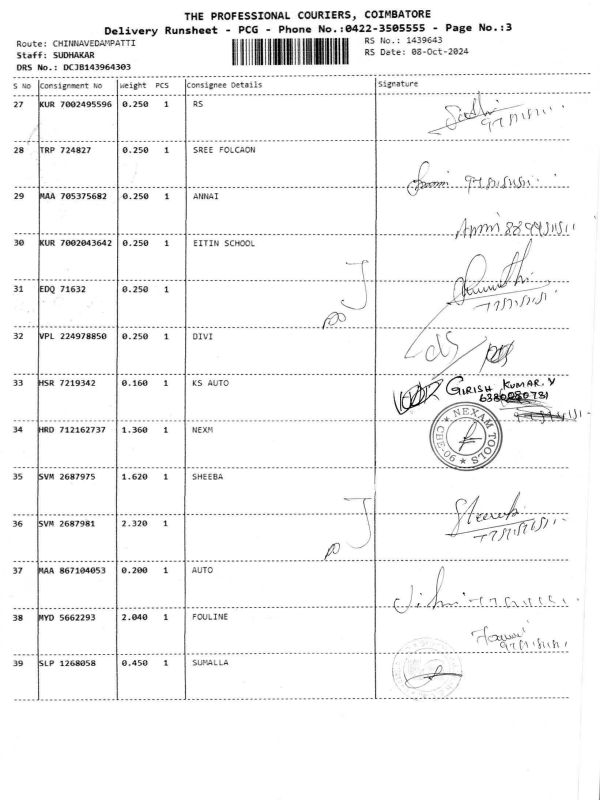 THE PROFESSIONAL COURIERS, COIMBATORE
Delivery Runsheet - PCG - Phone No.:0422-3505555 - Page No.:3
Route: CHINNAVEDAMPATTI
RS No.: 1439643
Staff: SUDHAKAR
RS Date: 08-Oct-2024
DRS No.: DCJB143964303
S No Consignment No Weight PCS Consignee Details Signature
27 KUR 7002495596 0.250 1 RS
28 TRP 724827 0.250 1 SREE FOLCAON
29 MAA 705375682 0.250 1 ANNAI
30 KUR 7002043642 0.250 1 EITIN SCHOOL
31 EDQ 71632 0.250 1
32 VPL 224978850 0.250 1 DIVI
33 HSR 7219342 0.160 1 KS AUTO
GIRISH KUMAR. V
6380080781
34 HRD 712162737 1.360 1 NEXM
NEXAM TOOLS
CBE-06
35 SVM 2687975 1.620 1 SHEEBA
36 SVM 2687981 2.320 1
37 MAA 867104053 0.200 1 AUTO
38 MYD 5662293 2.040 1 FOULINE
39 SLP 1268058 0.450 1 SUMALLA